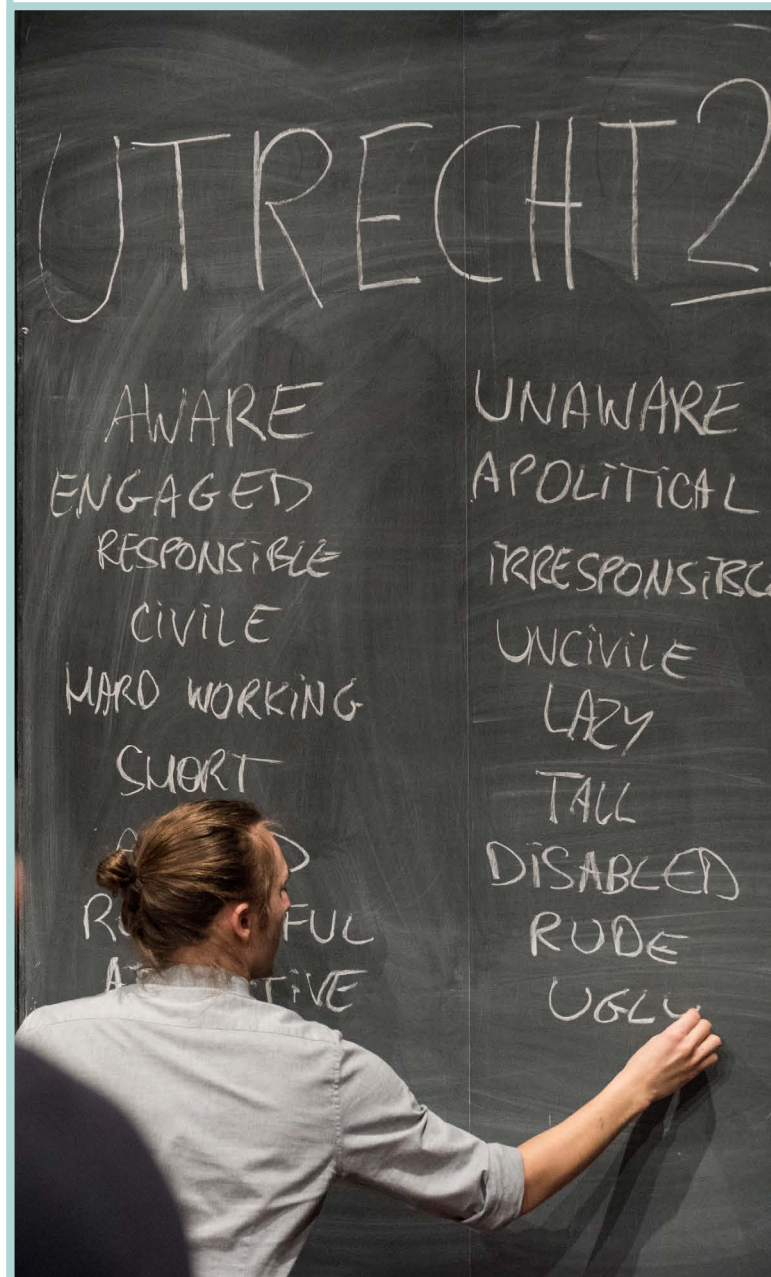 UTRECHT 2
AWARE
ENGAGED
RESPONSIBLE
CIVILE
HARD WORKING
SHORT
UNAWARE
APOLITICAL
IRRESPONSIBLE
UNCIVILE
LAZY
TALL
DISABLED
RUDE
UGLY